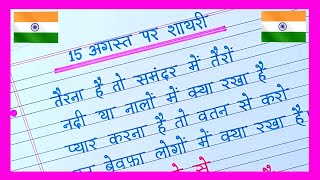 15 अगस्त पर शायरी
तैरना है तो समंदर में तैरों
नदी या नालों में क्या रखा है
प्यार करना है तो वतन से करो
बेवफ़ा लोगों में क्या रखा है